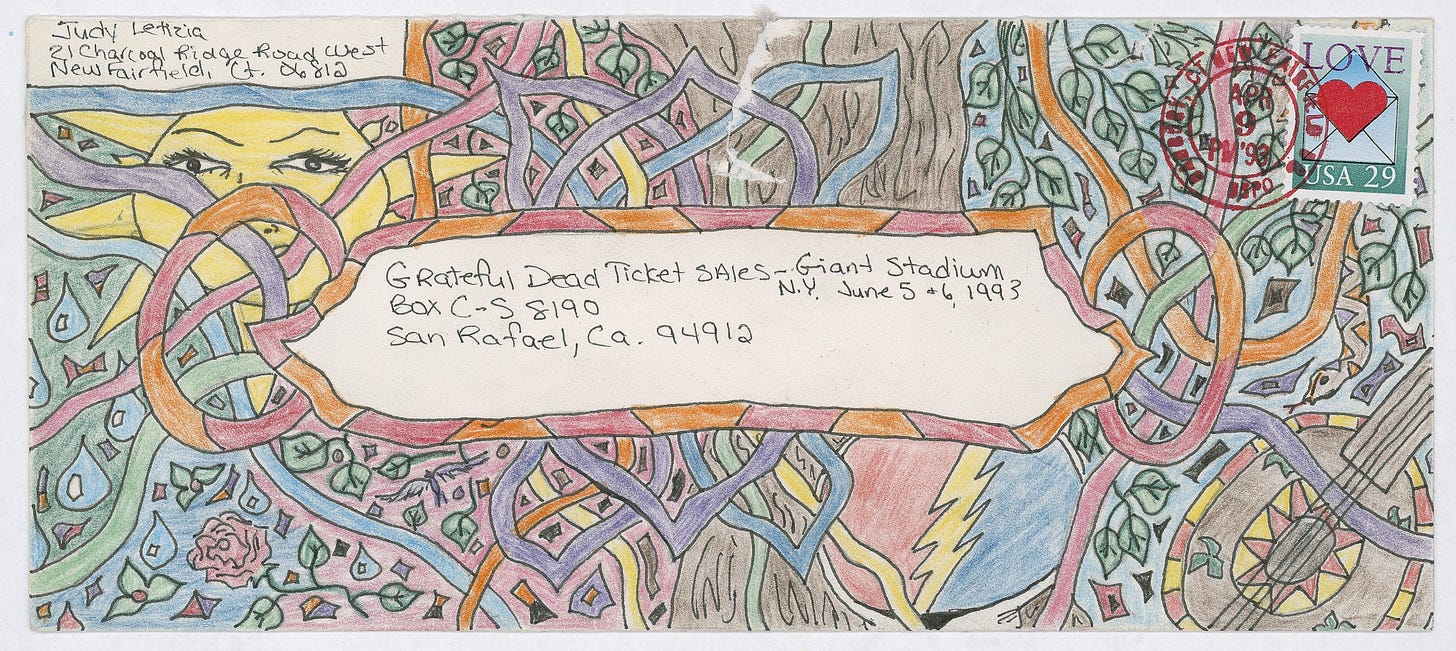 Judy Letizia
21 Charcoal Ridge Road West
New Fairfield, Ct. 06812
LOVE
USA 29
APR
9
PM '93
USPO
Grateful Dead Ticket Sales - Giant Stadium
N.Y. June 5 + 6, 1993
Box C-S 8190
San Rafael, Ca. 94912